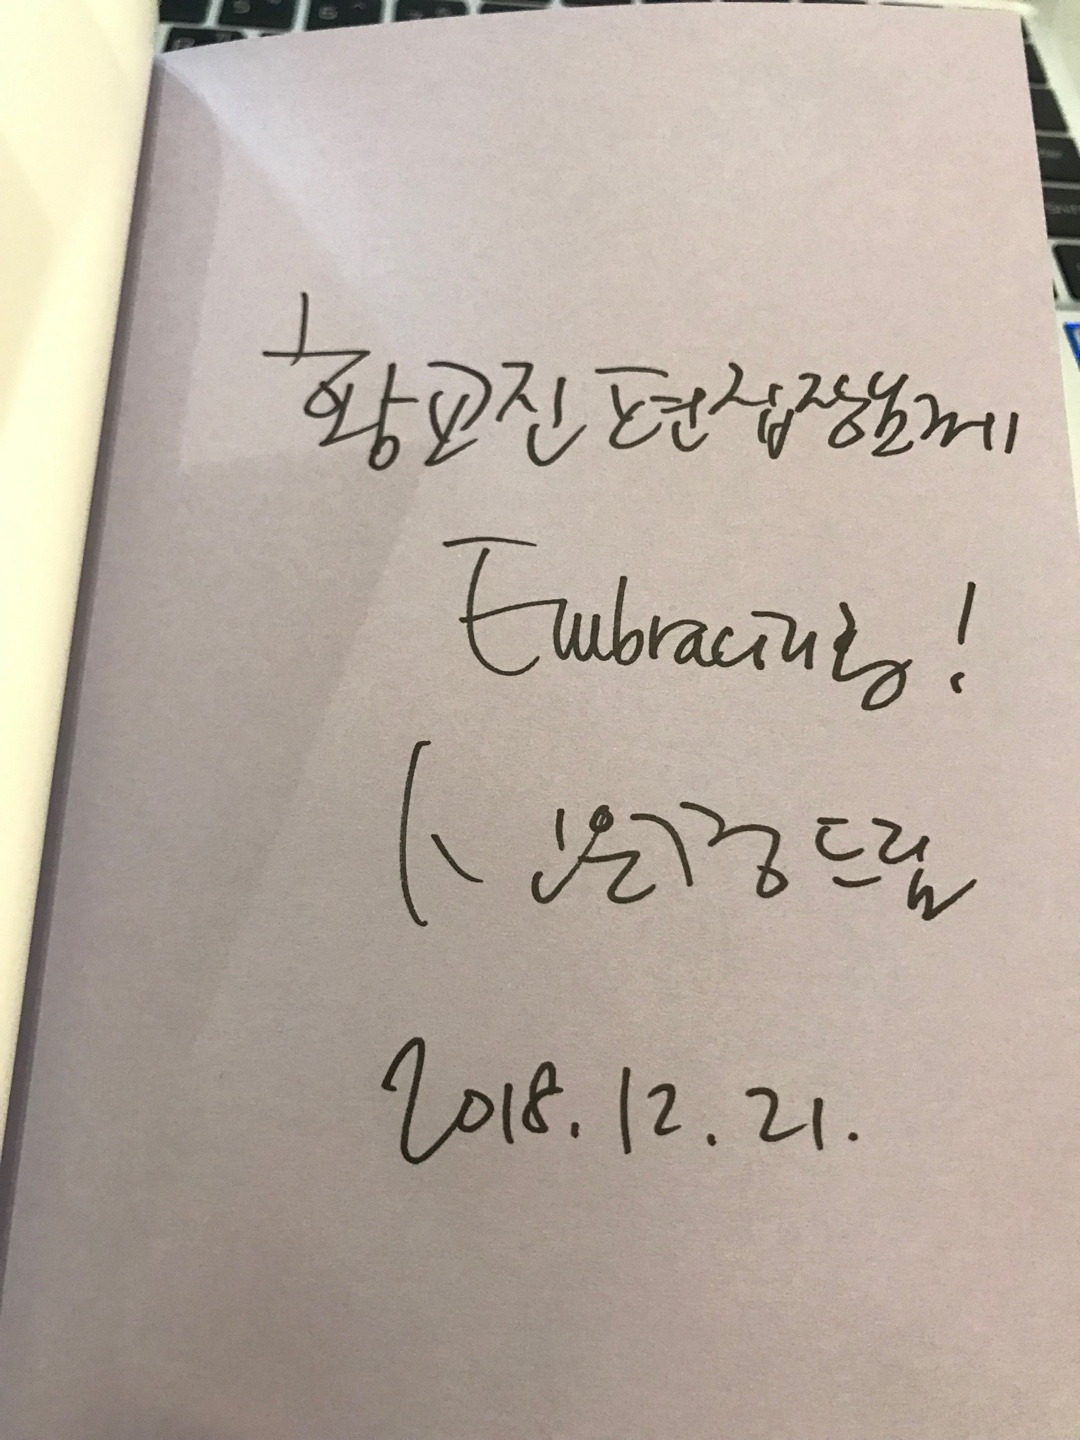 황교진 편집장님께
Embracing!
드림
2018. 12. 21.